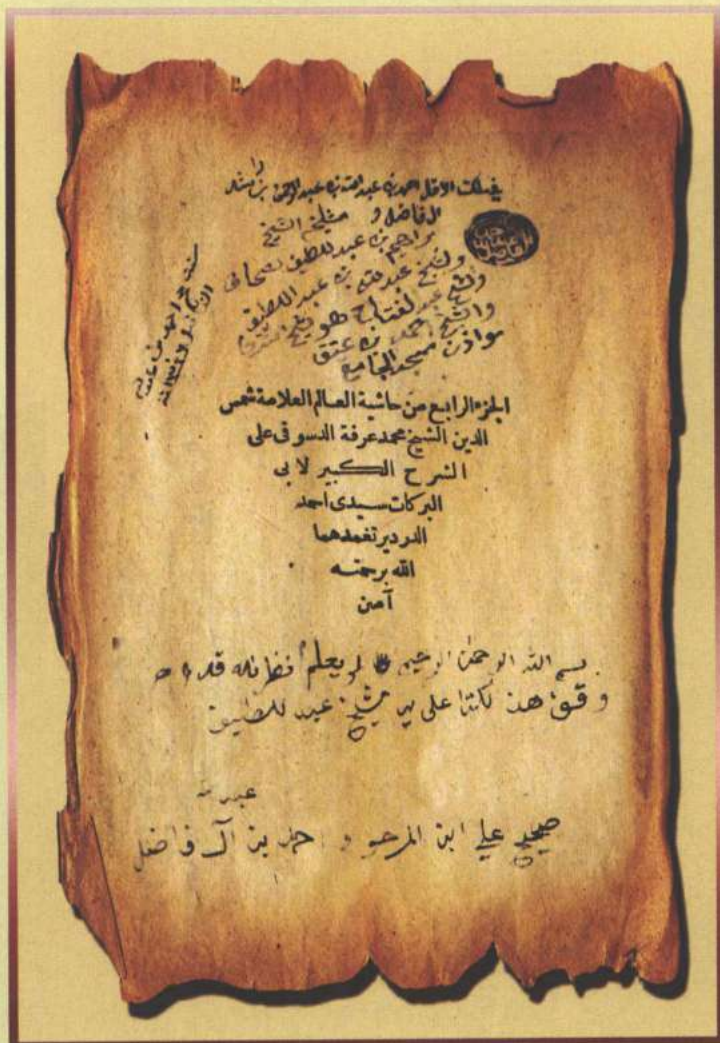 في ملك الاقل احمد بن عبد الله بن عبد الرحمن بن راشد
الفاضل و مشايخ الشيخ
براهيم بن عبد للطيف
والشيخ عبد الله بن عبد اللطيف
والشيخ عبد لفتاح هو
والشيخ احمد بن عتق
مواذن مسجد الجامع
الجزء الرابع من حاشية العالم العلامة شمس
الدين الشيخ محمد عرفة الدسوقى على
الشرح الكبير لابى
البركات سيدى احمد
الدردير تغمدهما
الله برحمته
آمين
بسم الله الرحمن الرحيم يعلم
وقف هذ لكتا على يد شيخ عبد للطيف
عبد
صحيح علي ابن المرحو احمد بن آل فاضل